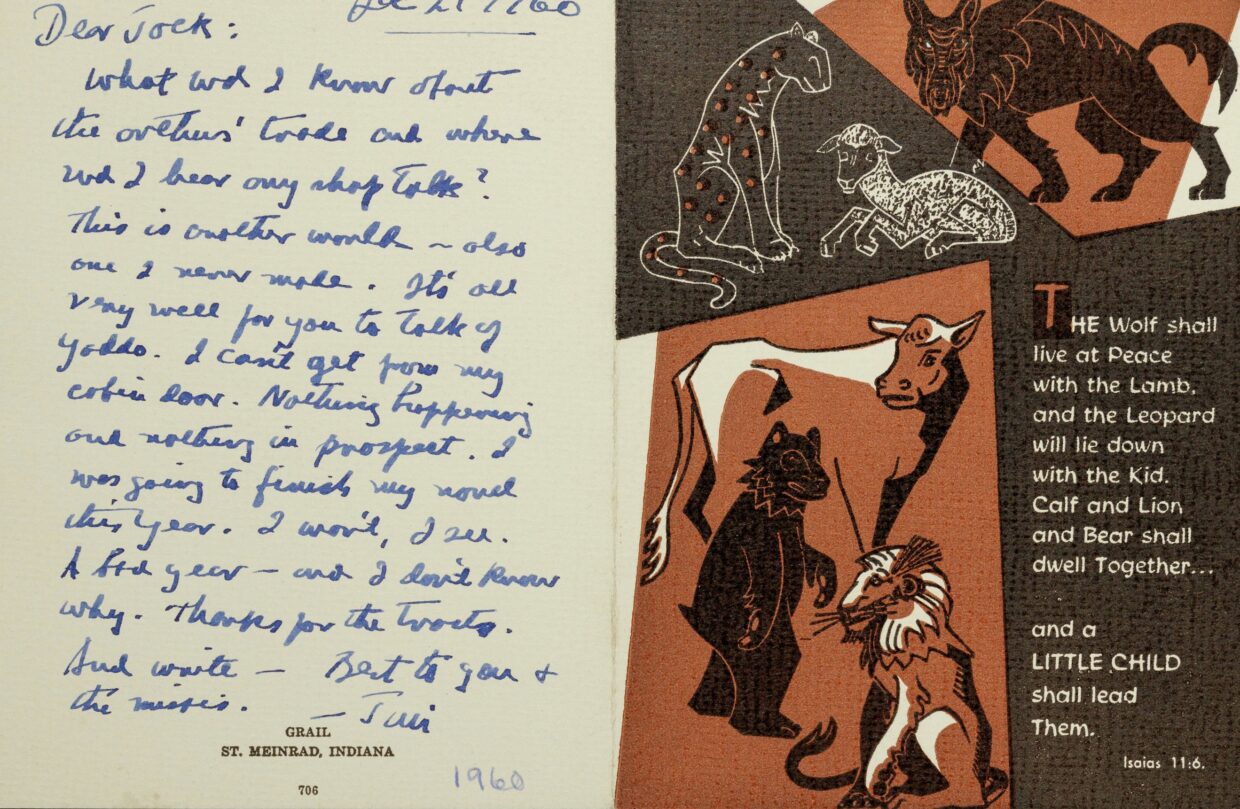 Dec 21 1960
Dear Jock:
What wd I know about
the authors' trade and where
wd I hear any shop talk?
This is another world – also
one I never made. It's all
very well for you to talk of
Yaddo. I can't get from my
cabin door. Nothing happening
and nothing in prospect. I
was going to finish my novel
this year. I won't, I see.
A bad year – and I don't know
why. Thanks for the tracts.
And write – Best to you &
the missis.
– Jim
GRAIL
ST. MEINRAD, INDIANA
706
1960
THE Wolf shall
live at Peace
with the Lamb,
and the Leopard
will lie down
with the Kid.
Calf and Lion
and Bear shall
dwell Together...
and a
LITTLE CHILD
shall lead
Them.
Isaias 11:6.